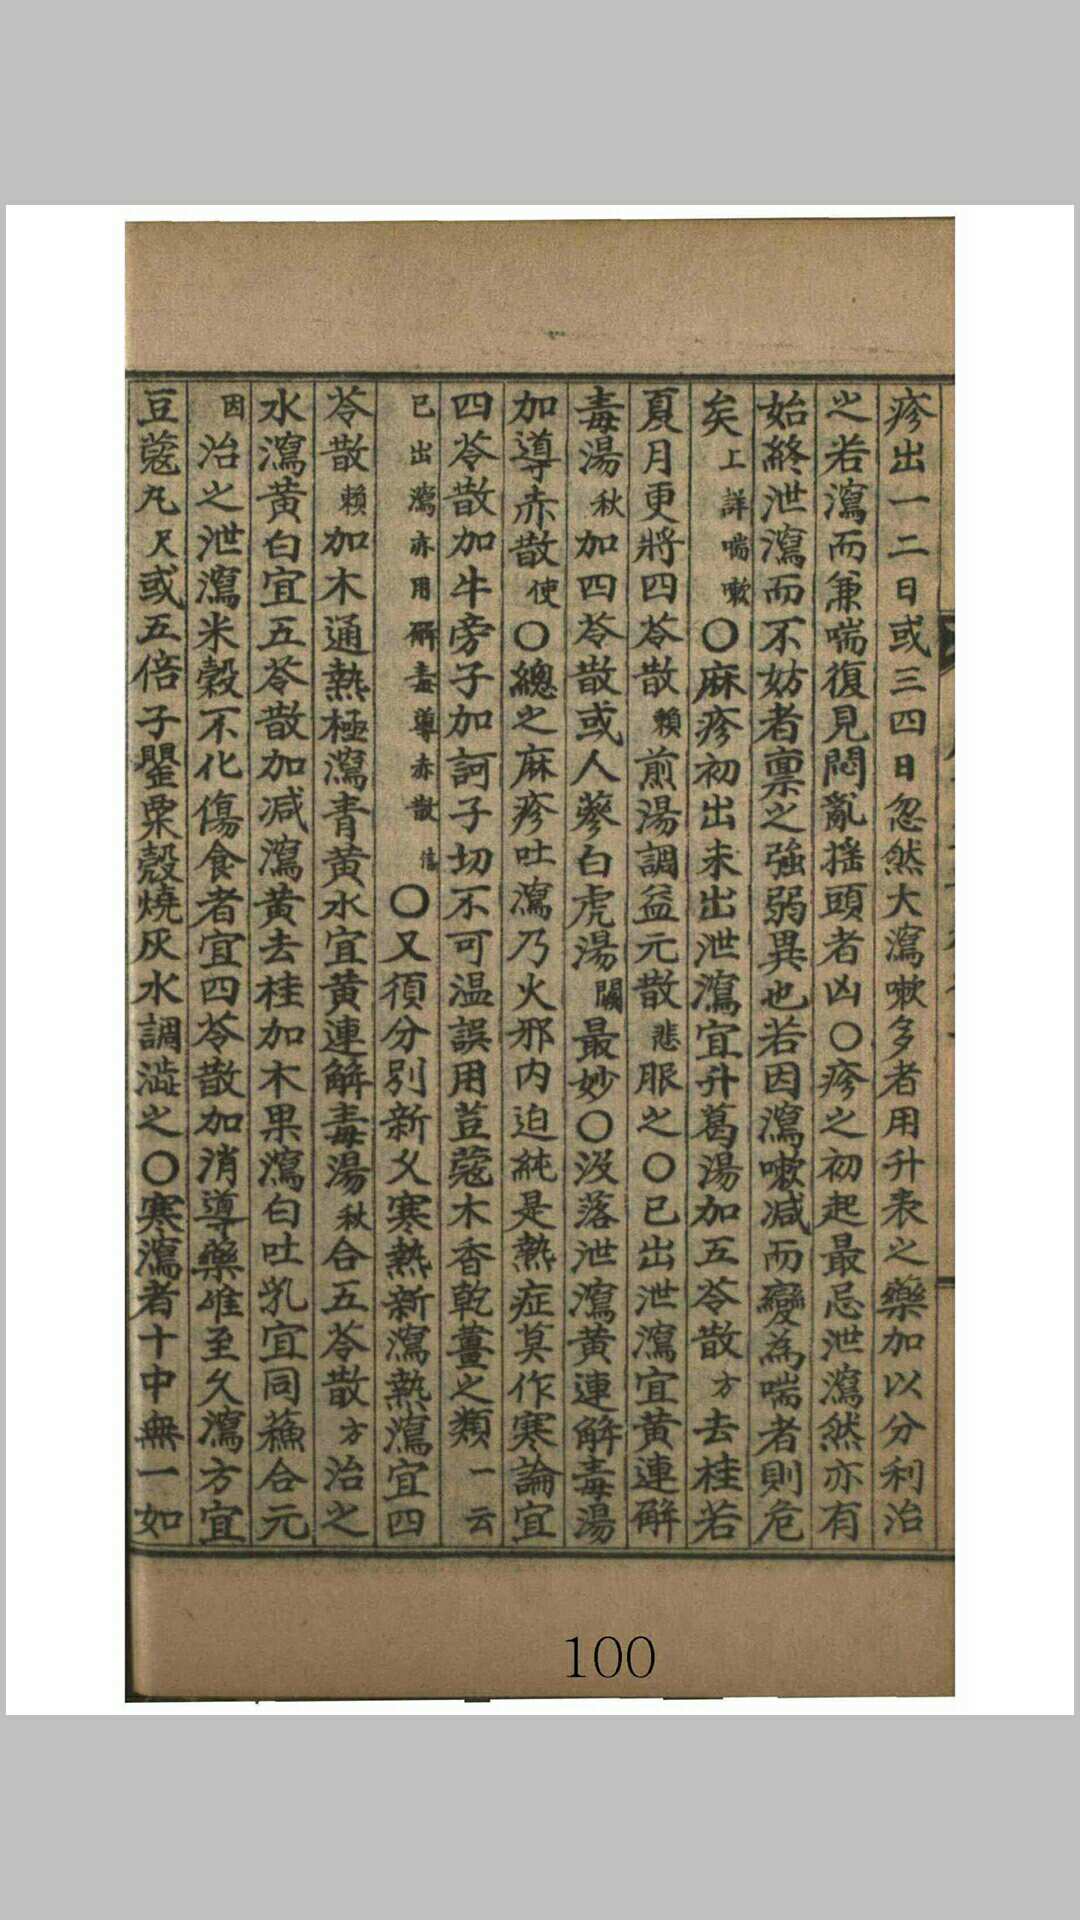 疹出一二日或三四日忽然大瀉嗽多者用升表之藥加以分利治
之若瀉而兼喘復見悶亂揺頭者凶〇疹之初起最忌泄瀉然亦有
始終泄瀉而不妨者禀之強弱異也若因瀉嗽减而變為喘者則危
矣上詳喘嗽〇麻疹初出未出泄瀉宜升葛湯加五苓散方去桂若
夏月更將四苓散賴煎湯調益元散悲服之〇已出泄瀉宜黄連解
毒湯秋加四苓散或人蔘白虎湯闕最妙〇沒落泄瀉黄連解毒湯
加導赤散使〇總之麻疹吐瀉乃火邪内迫純是熱症莫作寒論宜
四苓散加牛旁子加訶子切不可温誤用荳蔲木香乾薑之類一云
已出瀉亦用解毒導赤散信〇又須分別新久寒熱新瀉熱瀉宜四
苓散賴加木通熱極瀉青黄水宜黄連解毒湯秋合五苓散方治之
水瀉黄白宜五苓散加减瀉黄去桂加木果瀉白吐乳宜同蘓合元
因治之泄瀉米糓不化傷食者宜四苓散加消導藥唯至久瀉方宜
豆蔲丸尺或五倍子罌粟殼燒灰水調澁之〇寒瀉者十中無一如
100